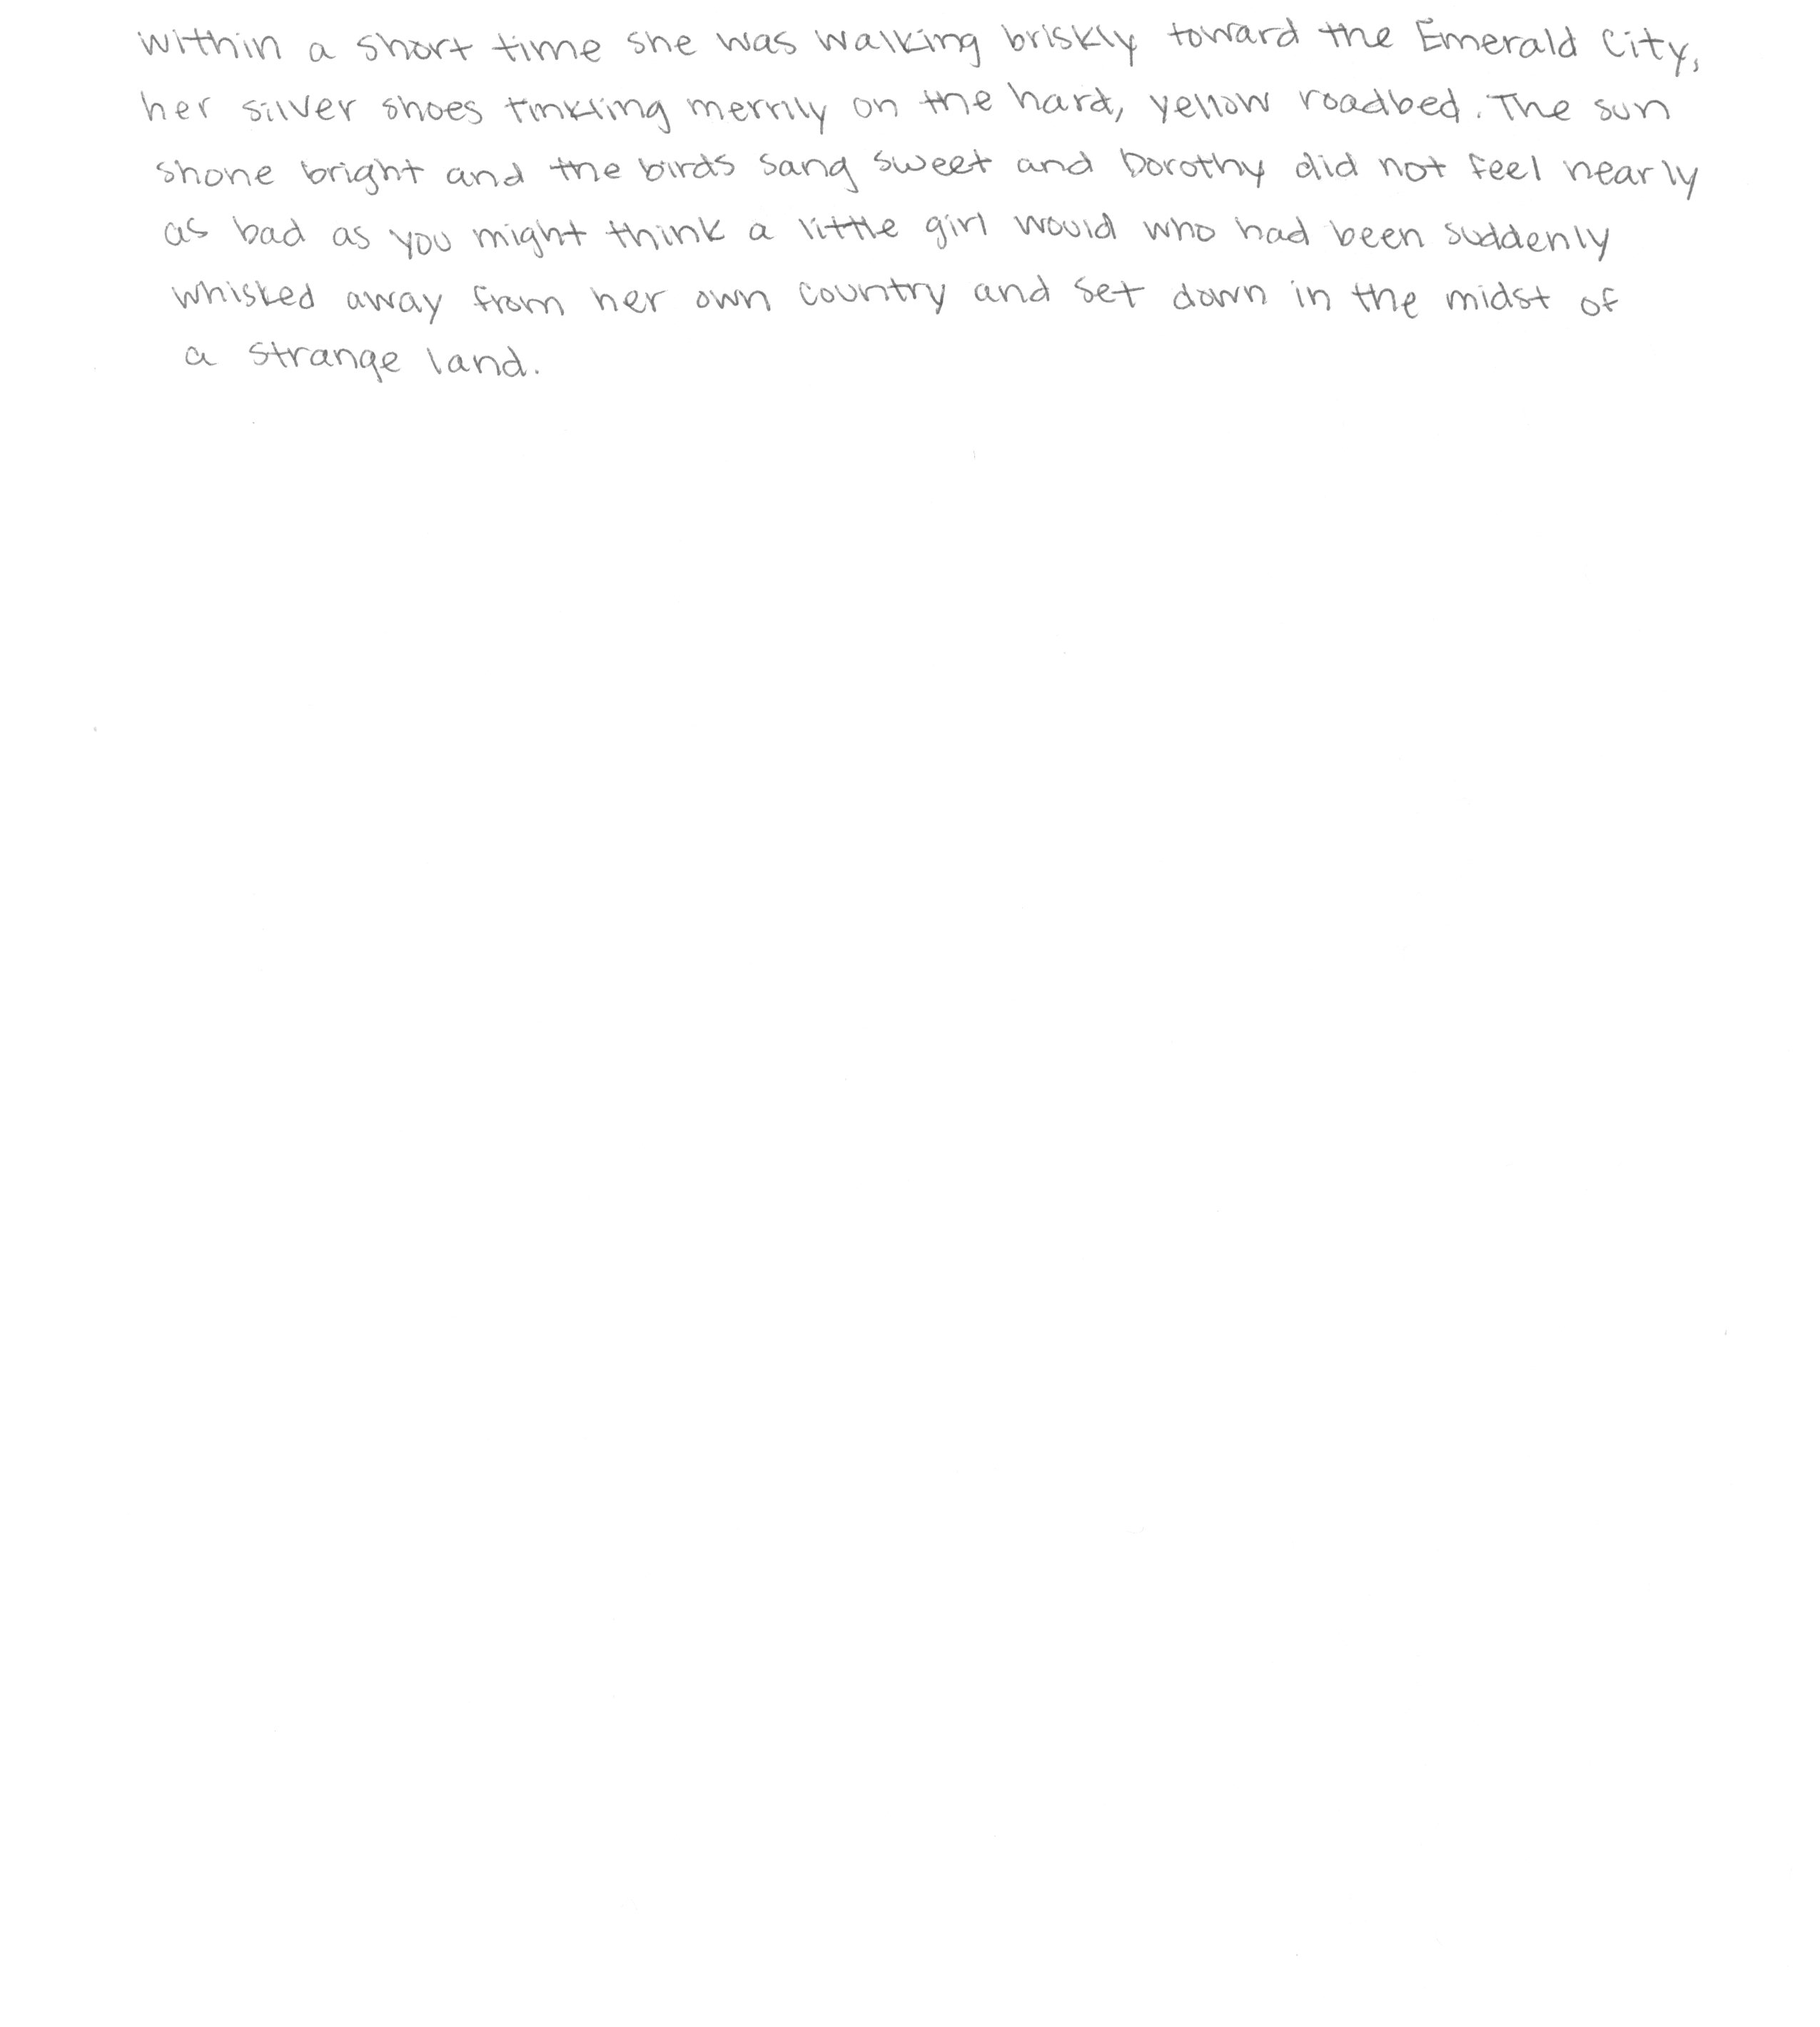 within a short time she was walking briskly toward the Emerald City,
her silver shoes tinkling merrily on the hard, yellow roadbed. The sun
shone bright and the birds sang sweet and Dorothy did not feel nearly
as bad as you might think a little girl would who had been suddenly
whisked away from her own country and set down in the midst of
a strange land.